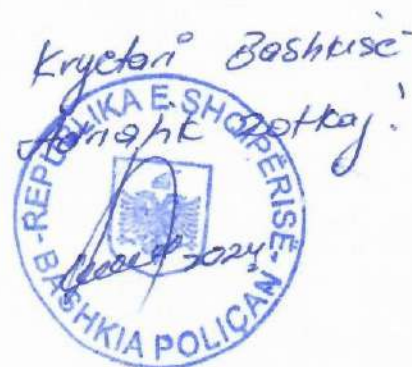 Kryetari Bashkisë
Adriatik Zotkaj
-REPUBLIKA E SHQIPËRISË-
2024
BASHKIA POLIÇAN